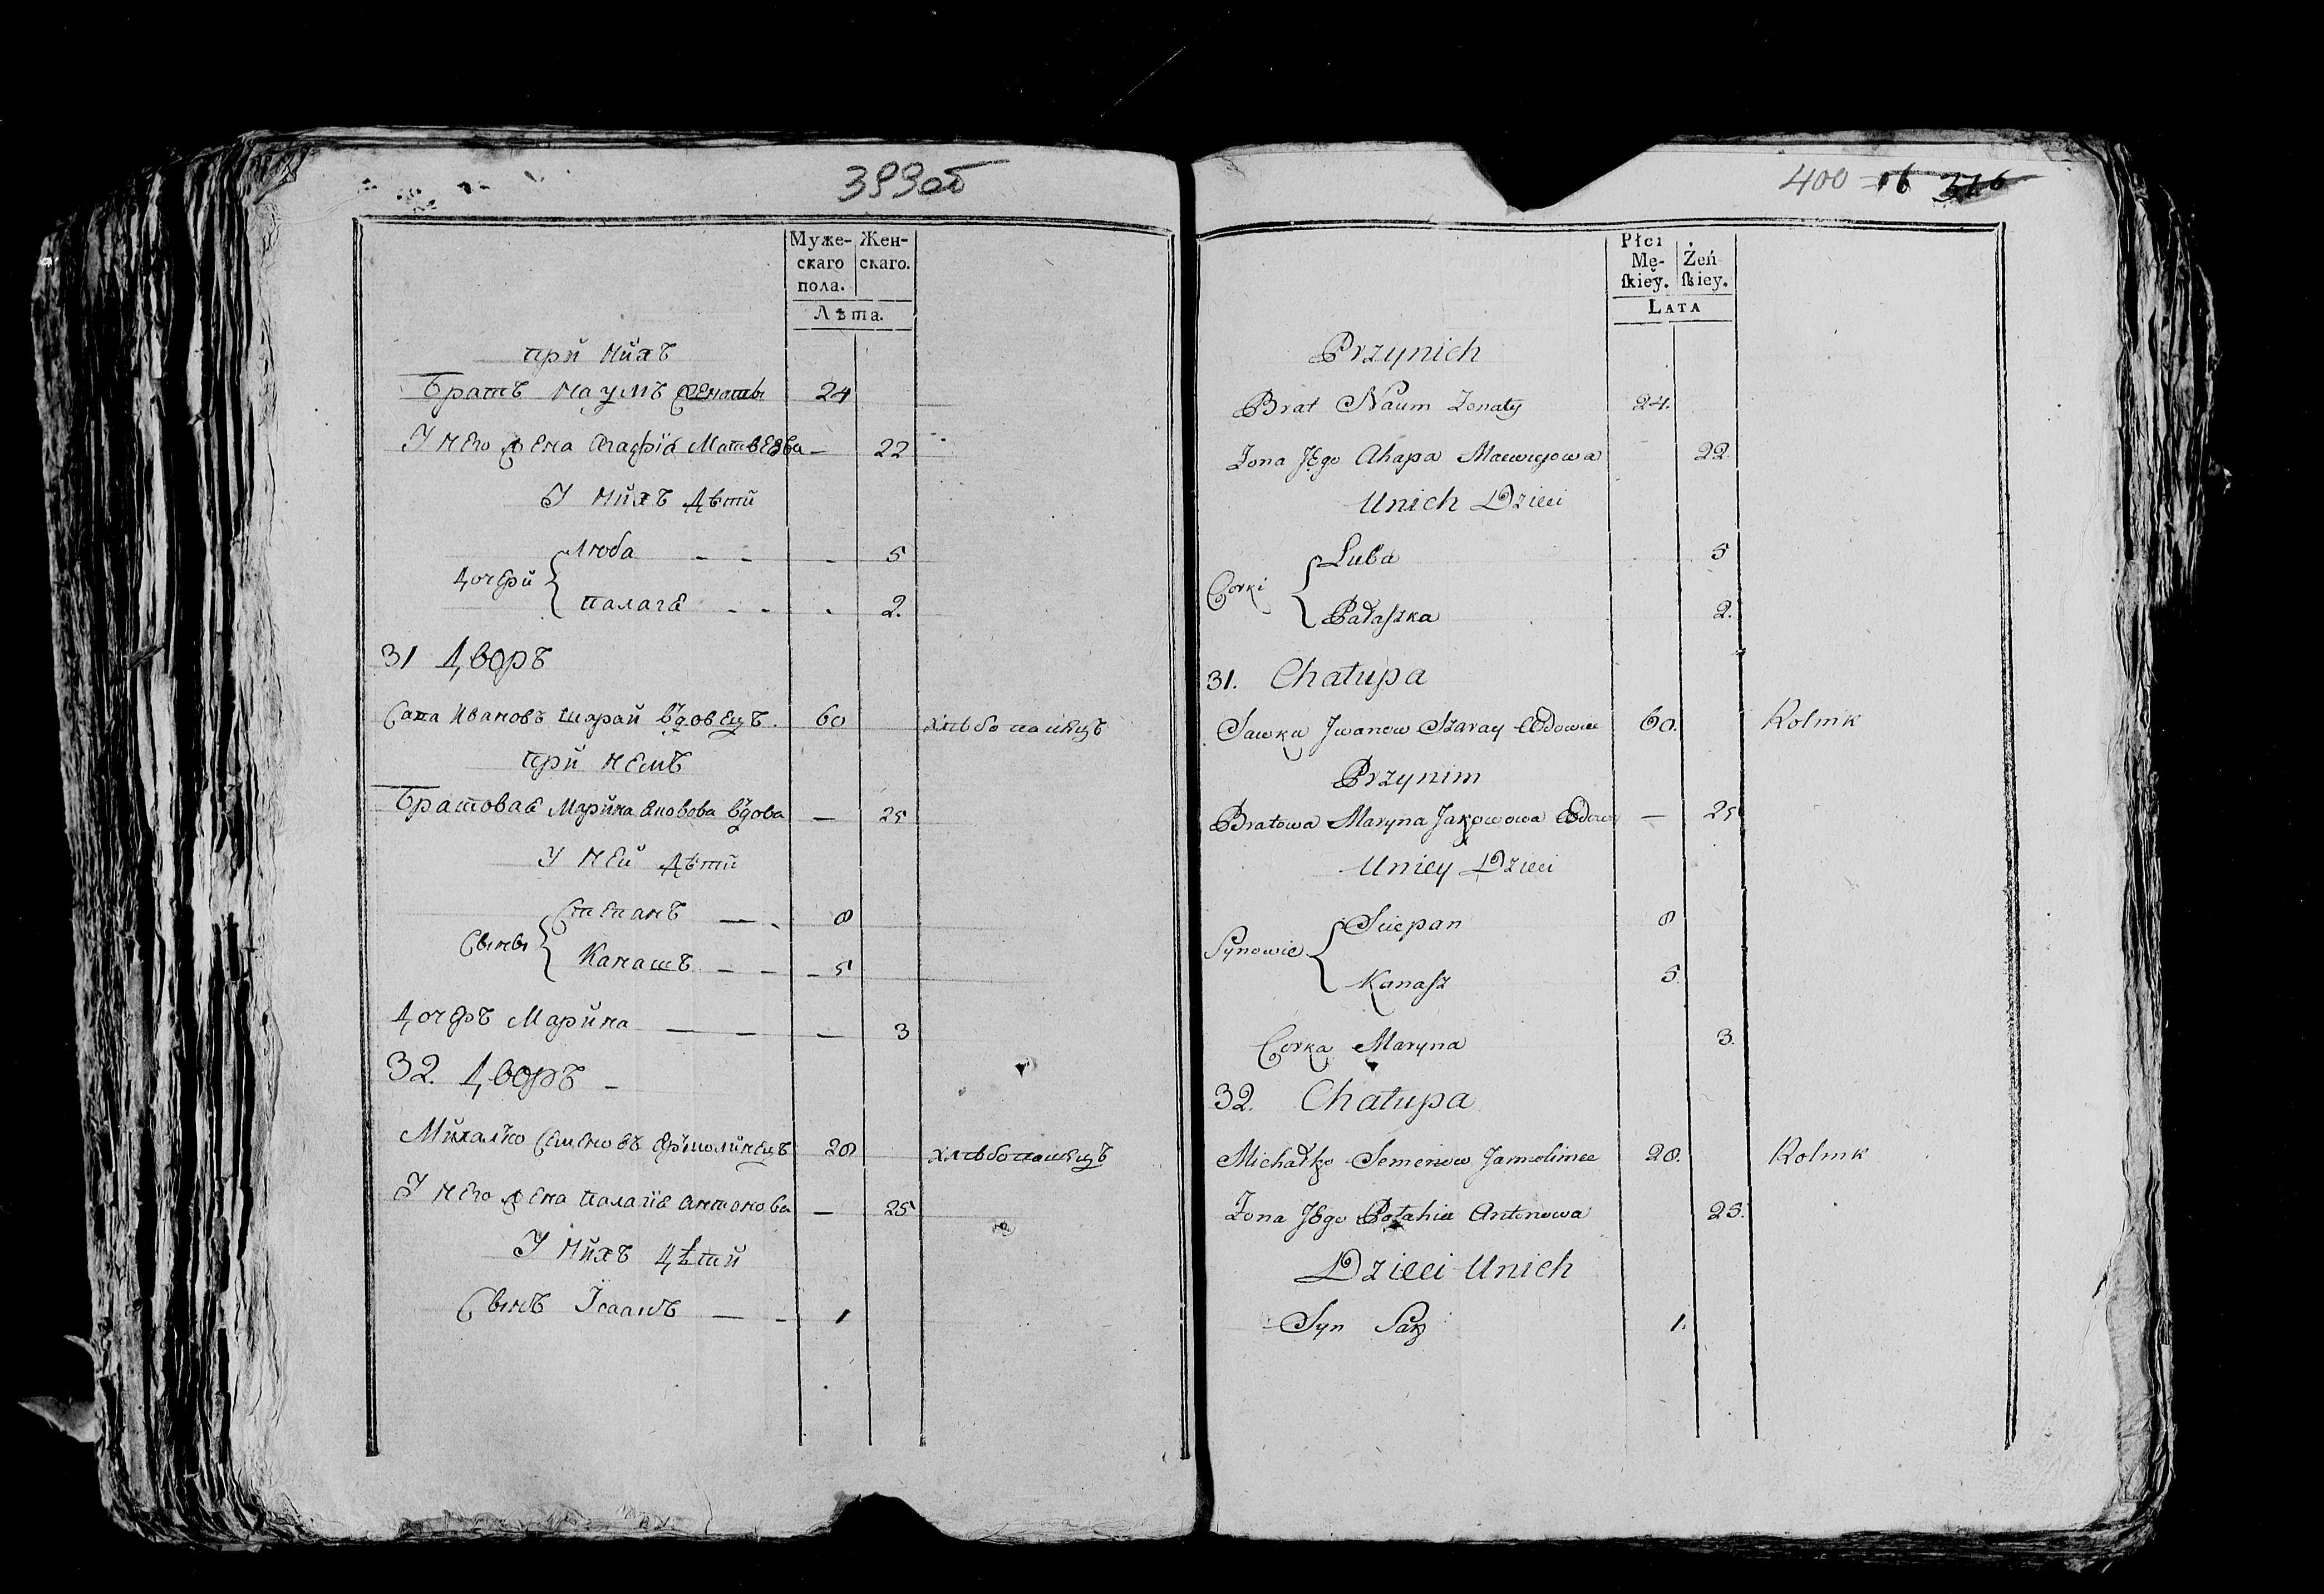 399об
Муже- Жен-
скаго скаго.
пола.
Лѣта.
при нихъ
Братъ Наумъ женатъ 24
У него жена Агафія Матвеэва — 22
У нихъ дѣти
Люба — — - 5
дочери
Палагѣ - - . 2.
31 дворъ
Сапа Ивановъ Шарай вдовецъ. 60 хлѣбопашецъ
при немъ
Братовая Марина вдова — 25
У ней дѣти
Степанъ — . 8
Сыны
Канашъ — — - 5
дочеръ Марина — — — 3
32. дворъ -
Михалко Семеновъ 28 хлѣбопашецъ
У него жена Палагіѣ Антонова — 25
У нихъ дѣтй
Сынъ Ісаакъ — - 1
400 16 316
Płci
Mę- Żeń
skiey. skiey.
LATA
Przynich
Brat Naum Zonaty 24.
Zona JEgo Ahapa Maewiejowa 22
Unich Dzieci
Luba 5
Corki
Pałaszka 2.
31. Chałupa
Sawka Jwanow Szaray Wdowiec 60. Rolnik
Przynim
Bratowa Maryna Jakowowa Wdowa — 25
Uniey Dzieci
Sciepan 8
Synowie
Kanasz 5
Corka Maryna 3.
32. Chałupa
Michałko Semenow Jarmoliniec 28. Rolnik
Zona JEgo Połahia Antonowa 25.
Dzieci Unich
Syn Sak 1.